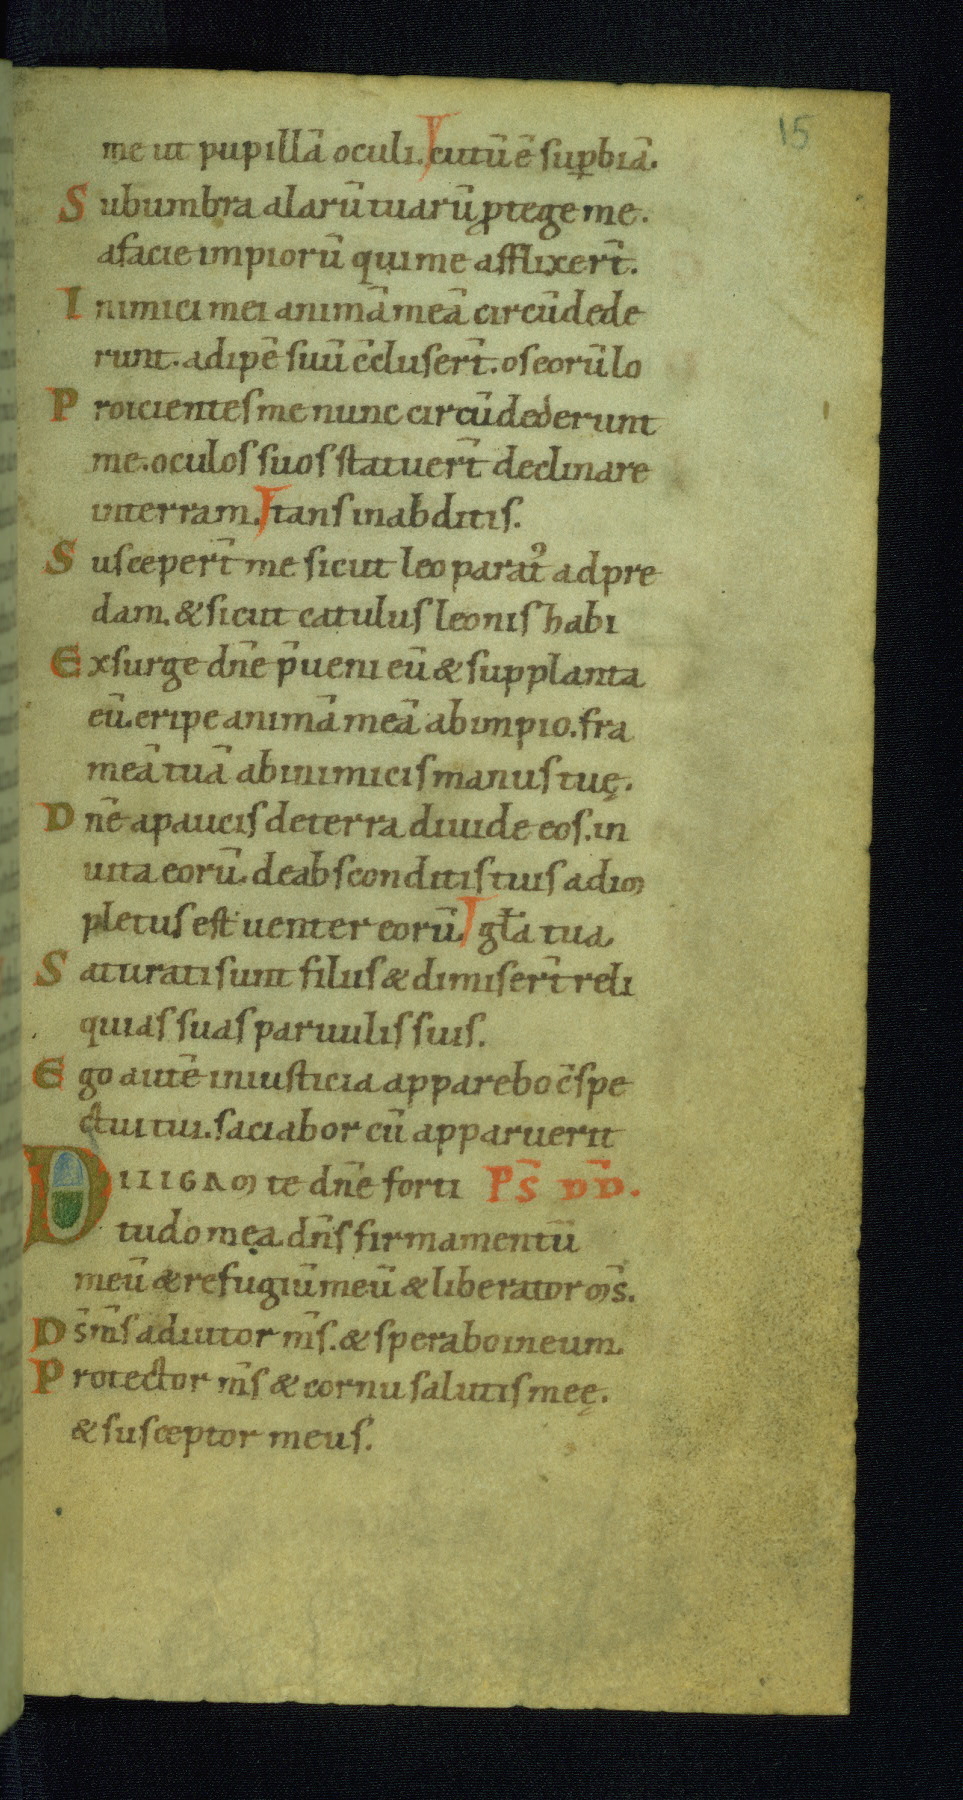 15
me ut pupillā oculi. cutū ē suꝑbiā.
Sub umbra alarū tuarū ꝓtege me.
a facie impiorū qui me afflixer̄t.
Inimici mei animā meā circūdede
runt. adipē suū c̄cluser̄t. os eorū lo
Proicientes me nunc circūdederunt
me. oculos suos statuer̄t declinare
in terram. tans in abditis.
Susceper̄t me sicut leo parat᷒ ad pre
dam. & sicut catulus leonis habi
Exsurge dn̄e p̄ueni eū & supplanta
eū. eripe animā meā ab impio. fra
meā tuā ab inimicis manus tuę.
Dn̄e a paucis de terra diuide eos. in
uita eorū. de absconditis tuis adim
pletus est uenter eorū. gl̄a tua
Saturati sunt filiis & dimiser̄t reli
quias suas paruulis suis.
Ego autē in iusticia apparebo c̄spe
ctui tui. saciabor cū apparuerit
DILIGAM te dn̄e forti PS̄ DD̄.
tudo mea dn̄s firmamentū
meū & refugiū meū & liberator ms̄.
Ds̄ ms̄ adiutor ms̄. & sperabo in eum.
Protector ms̄ & cornu salutis meę.
& susceptor meus.